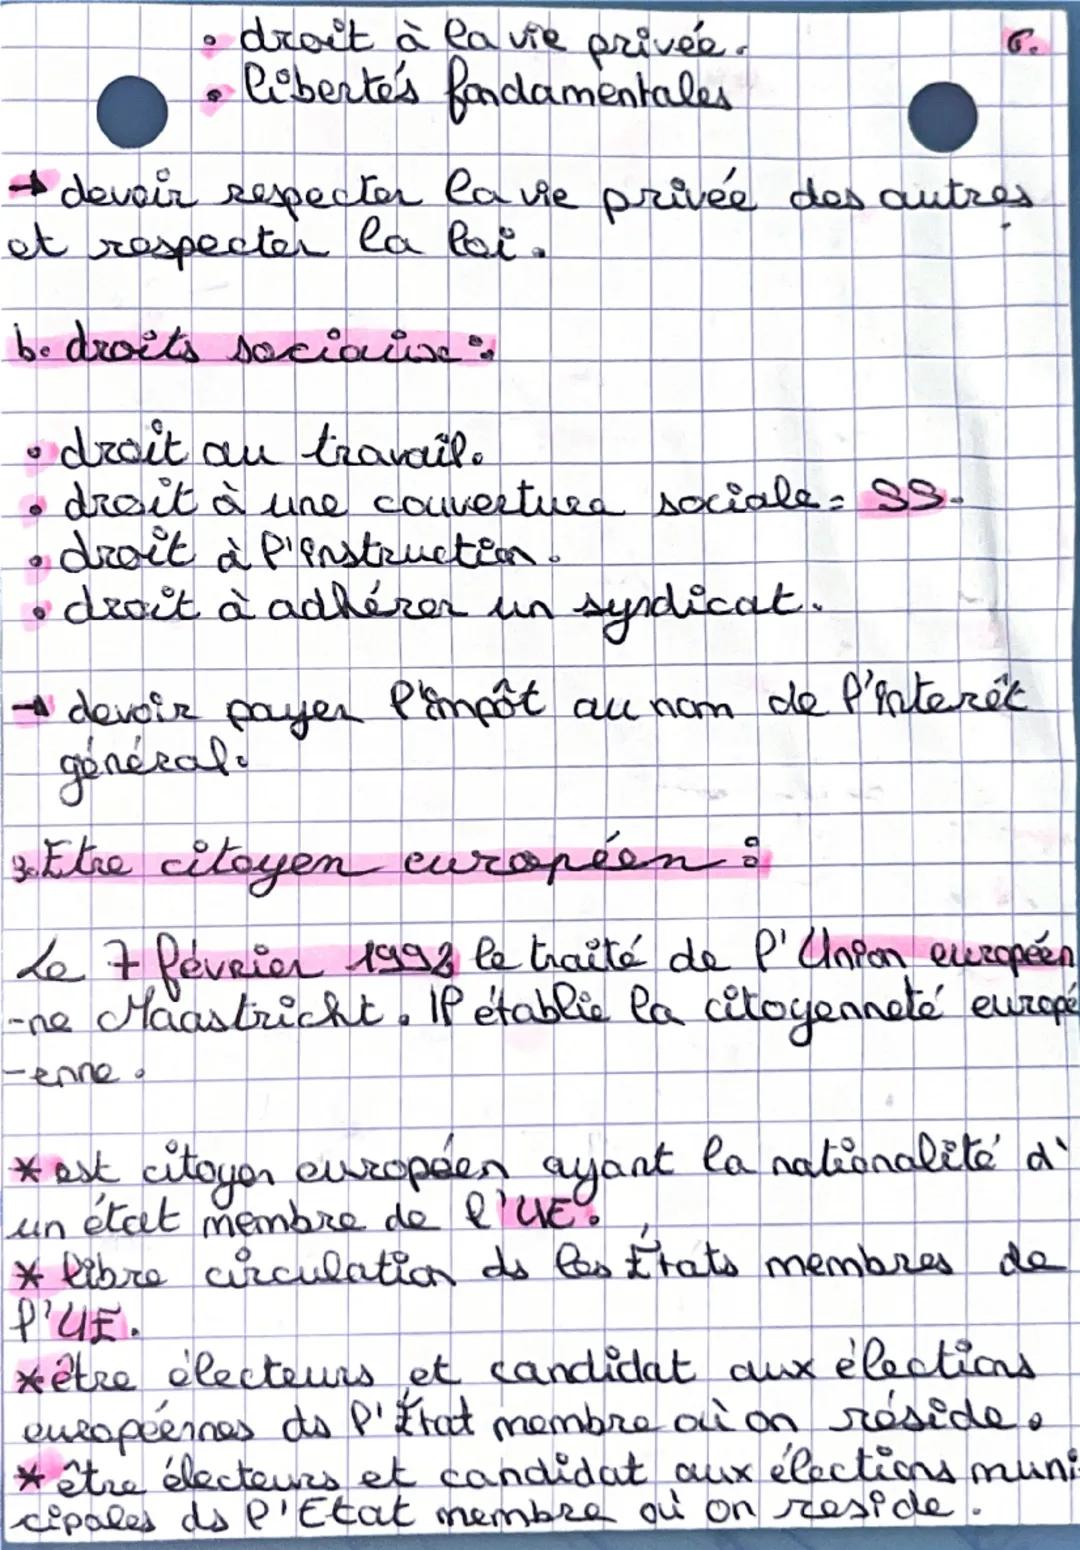 • droit à la vie privée. 6.
• libertés fondamentales
→ devoir respecter la vie privée des autres
et respecter la loi.
b. droits sociaux :
• droit au travail.
• droit à une couverture sociale = SS.
• droit à l'instruction.
• droit à adhérer un syndicat.
→ devoir payer l'impôt au nom de l'interêt
général.
3. Etre citoyen européen :
Le 7 février 1992 le traité de l'Union européen
-ne Maastricht. Il établie la citoyenneté europé
-enne.
* est citoyen européen ayant la nationalité d'
un état membre de l'UE.
* libre circulation ds les États membres de
l'UE.
* être électeurs et candidat aux élections
européennes ds l'État membre où on réside.
* être électeurs et candidat aux élections muni-
cipales ds l'Etat membre où on reside.